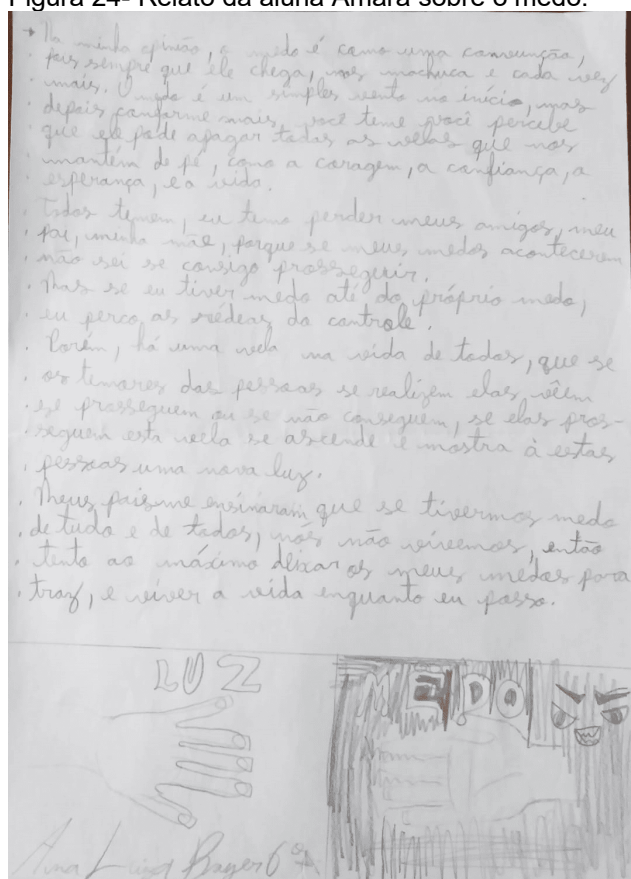 Figura 24- Relato da aluna Amara sobre o medo.
Na minha opinião, o medo é como uma
pois sempre que ele chega, nos machuca e cada vez
mais. O medo é um simples vento no início, mas
depois conforme mais, você teme você percebe
que ele pode apagar todas as velas que nos
mantém de pé, como a coragem, a confiança, a
esperança, e a vida.
Todos temem, eu temo perder meus amigos, meu
pai, minha mãe, porque se meus medos acontecerem
não sei se consigo prosseguir.
Mas se eu tiver medo até do próprio medo,
eu perco as rédeas do controle.
Porém, há uma vela na vida de todos, que se
os temores das pessoas se realizem elas vêem
se prosseguem ou se não conseguem, se elas pros-
seguem esta vela se ascende e mostra à estas
pessoas uma nova luz.
Meus pais me ensinaram que se tivermos medo
de tudo e de todos, nós não vivemos, então
tento ao máximo deixar os meus medos para
traz, e viver a vida enquanto eu posso.
LUZ
MEDO
Ana 6º A